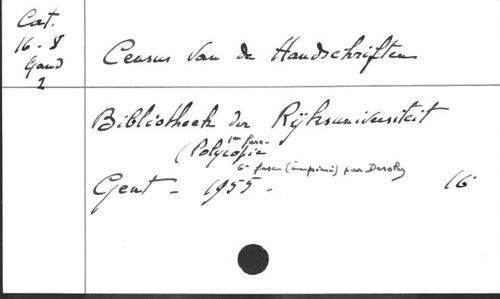 Cat.
16-8
Gand
2
Census van de Handschriften
Bibliotheek der Rijksuniversiteit
1er fasc.
(Polycopie
6e fasc. (imprimé) par Derolez
Gent - 1955 -
16